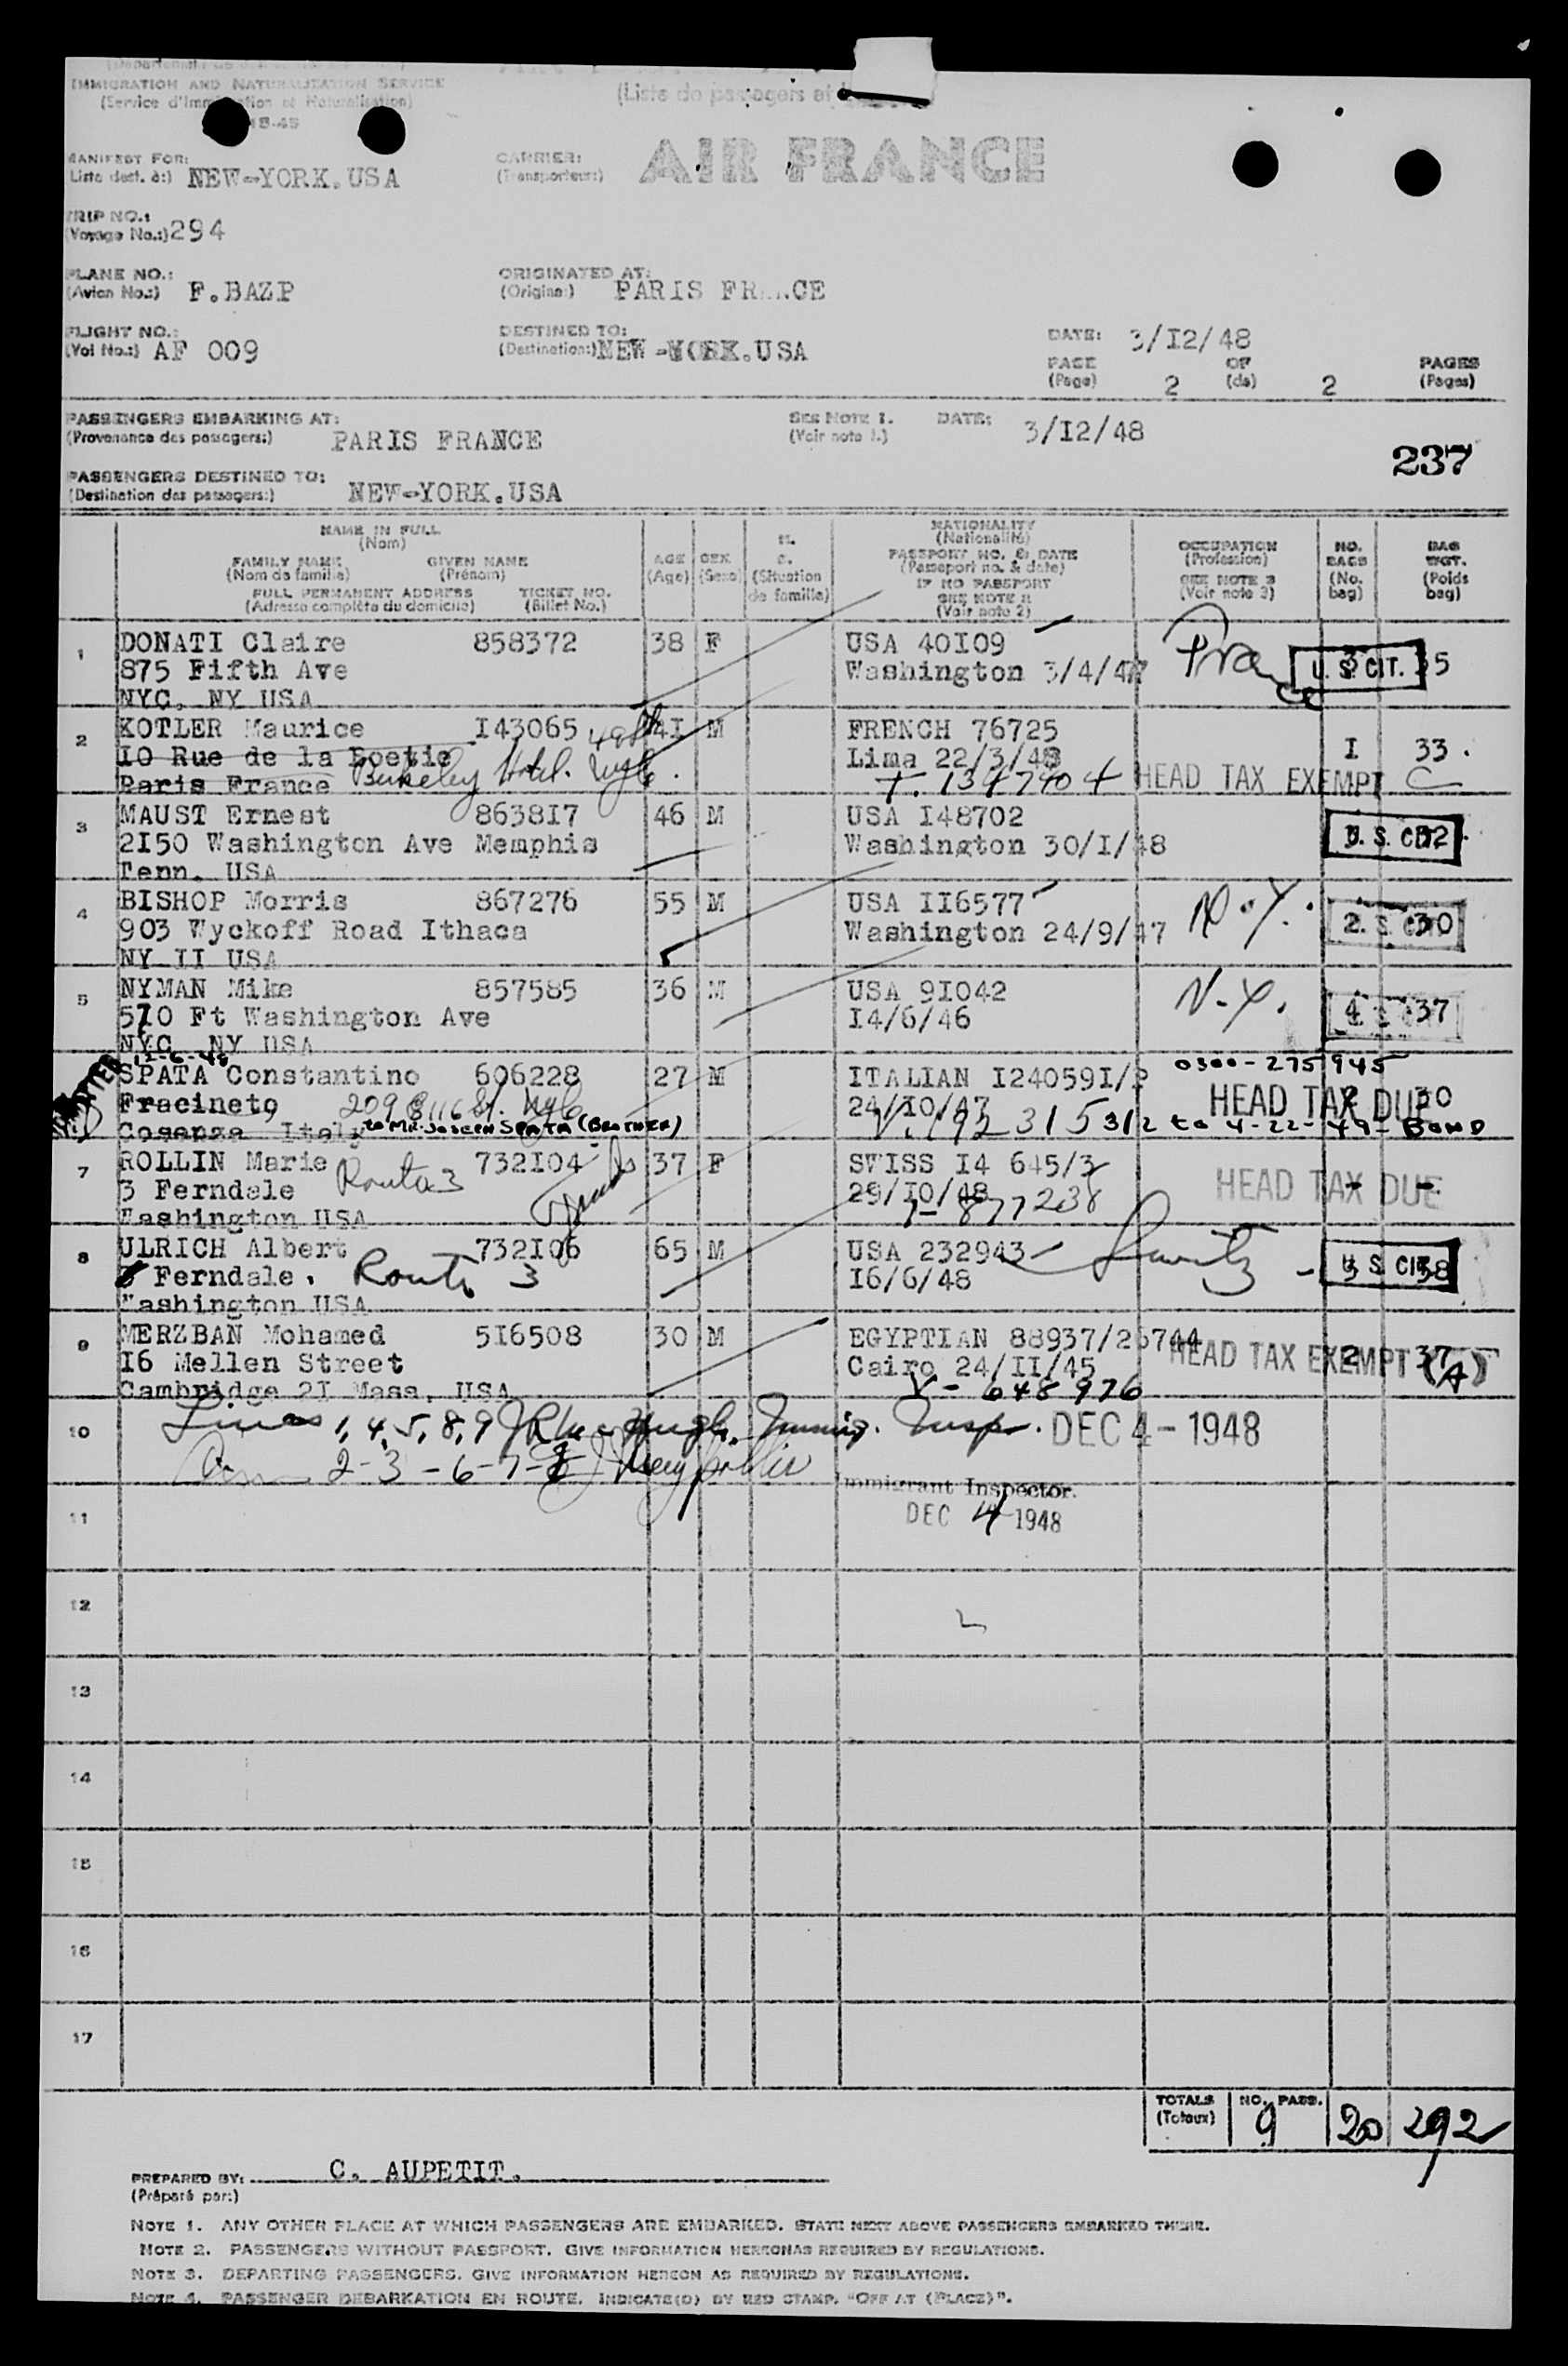 IMMIGRATION AND NATURALIZATION SERVICE
(Service d'Immigration et Naturalisation)
(Liste de passagers et
MANIFEST FOR:
(Liste dest. à:) NEW-YORK.USA
CARRIER:
(Transporteur:) AIR FRANCE
TRIP NO.:
(Voyage No.:) 294
PLANE NO.:
(Avion No.:) F.BAZP
ORIGINATED AT:
(Origine:) PARIS FRANCE
FLIGHT NO.:
(Vol No.:) AF 009
DESTINED TO:
(Destination:) NEW-YORK.USA
DATE: 3/I2/48
PAGE 2 OF 2 PAGES
(Page) (de) (Pages)
PASSENGERS EMBARKING AT:
(Provenance des passagers:) PARIS FRANCE
SEE NOTE 1.
(Voir note 1.)
DATE: 3/I2/48
237
PASSENGERS DESTINED TO:
(Destination des passagers:) NEW-YORK.USA
NAME IN FULL
(Nom)
FAMILY NAME GIVEN NAME
(Nom de famille) (Prénom)
FULL PERMANENT ADDRESS TICKET NO.
(Adresse complète du domicile) (Billet No.)
AGE
(Age)
SEX
(Sexe)
M.
S.
(Situation
de famille)
NATIONALITY
(Nationalité)
PASSPORT NO. & DATE
(Passeport no. & date)
IF NO PASSPORT
SEE NOTE 2
(Voir note 2)
OCCUPATION
(Profession)
SEE NOTE 3
(Voir note 3)
NO.
BAGS
(No.
bag)
BAG
WGT.
(Poids
bag)
1 DONATI Claire 858372 38 F USA 40I09 France 3 35
875 Fifth Ave Washington 3/4/47 U. S. CIT.
NYC. NY USA
2 KOTLER Maurice I43065 4I M FRENCH 76725 I 33.
IO Rue de la Boetie Lima 22/3/48
Paris France Berkeley Hotel. NYC. T. 1347404 HEAD TAX EXEMPT C
3 MAUST Ernest 8638I7 46 M USA I48702
2I50 Washington Ave Memphis Washington 30/I/48 U. S. CIT.
Tenn. USA
4 BISHOP Morris 867276 55 M USA II6577 N.Y. 2 30
903 Wyckoff Road Ithaca Washington 24/9/47 U. S. CIT.
NY II USA
5 NYMAN Mike 857585 36 M USA 9I042 N.Y. 4 37
510 Ft Washington Ave I4/6/46
NYC NY USA
12-6-48
0300-275945
SPATA Constantino 606228 27 M ITALIAN I24059I/P
Fracineto 24/IO/47 HEAD TAX DUE
Cosenza Italy to Mr. JOSEPH SPATA (BROTHER) V. 192315 312 to 4-22-49- BOND
7 ROLLIN Marie 732I04 37 F SWISS I4 645/3
3 Ferndale Route 3 29/IO/48 HEAD TAX DUE
Washington USA 877238
8 ULRICH Albert 732I06 65 M USA 232943
Ferndale. Route 3 I6/6/48 U. S. CIT. 38
Washington USA
9 MERZBAN Mohamed 5I6508 30 M EGYPTIAN 88937/26744
I6 Mellen Street Cairo 24/II/45 HEAD TAX EXEMPT (A) 2 37
Cambridge 2I Mass. USA V-648976
10 Lines 1,4,5,8,9 Immig. Insp. DEC 4 - 1948
2-3-6-7
Immigrant Inspector.
11 DEC 4 1948
12
13
14
15
16
17
TOTALS NO. PASS.
(Totaux) 9 20 292
PREPARED BY: C. AUPETIT.
(Préparé par:)
NOTE 1. ANY OTHER PLACE AT WHICH PASSENGERS ARE EMBARKED. STATE NEXT ABOVE PASSENGERS EMBARKED THERE.
NOTE 2. PASSENGERS WITHOUT PASSPORT. GIVE INFORMATION HEREON AS REQUIRED BY REGULATIONS.
NOTE 3. DEPARTING PASSENGERS. GIVE INFORMATION HEREON AS REQUIRED BY REGULATIONS.
NOTE 4. PASSENGER DEBARKATION EN ROUTE. INDICATE(D) BY RED STAMP. "OFF AT (PLACE)".